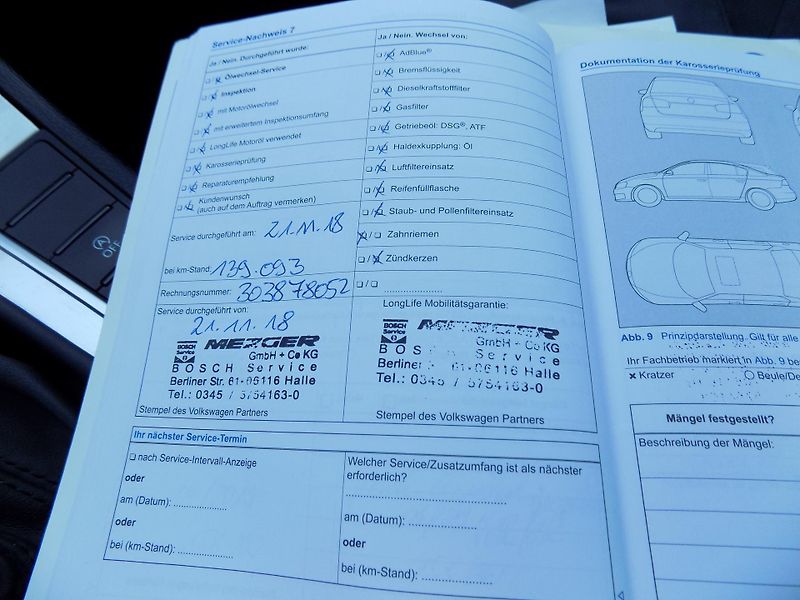 Service-Nachweis 7
Ja / Nein. Durchgeführt wurde:
❑ / ❑ Ölwechsel-Service
❑ / ❑ Inspektion
❑ / ❑ mit Motorölwechsel
❑ / ❑ mit erweitertem Inspektionsumfang
❑ / ❑ LongLife Motoröl verwendet
❑ / ❑ Karosserieprüfung
❑ / ❑ Reparaturempfehlung
❑ / ❑ Kundenwunsch
(auch auf dem Auftrag vermerken)
Service durchgeführt am: 21.11.18
bei km-Stand: 139.093
Rechnungsnummer: 303878052
Service durchgeführt von:
21.11.18
BOSCH Service
MEZGER
GmbH + Co KG
BOSCH Service
Berliner Str. 61-06116 Halle
Tel.: 0345 / 5754163-0
Stempel des Volkswagen Partners
Ja / Nein. Wechsel von:
❑ / ❑ AdBlue®
❑ / ❑ Bremsflüssigkeit
❑ / ❑ Dieselkraftstofffilter
❑ / ❑ Gasfilter
❑ / ❑ Getriebeöl: DSG®, ATF
❑ / ❑ Haldexkupplung: Öl
❑ / ❑ Luftfiltereinsatz
❑ / ❑ Reifenfüllflasche
❑ / ❑ Staub- und Pollenfiltereinsatz
❑ / ❑ Zahnriemen
❑ / ❑ Zündkerzen
❑ / ❑ ....................
LongLife Mobilitätsgarantie:
BOSCH Service
MEZGER
GmbH + Co KG
BOSCH Service
Berliner 61-06116 Halle
Tel.: 0345 / 5754163-0
Stempel des Volkswagen Partners
Ihr nächster Service-Termin
❑ nach Service-Intervall-Anzeige
oder
am (Datum): ...................
oder
bei (km-Stand): ...................
Welcher Service/Zusatzumfang ist als nächster
erforderlich?
.......................................................
am (Datum): .......................
oder
bei (km-Stand): ........................
Dokumentation der Karosserieprüfung
Abb. 9 Prinzipdarstellung. Gilt für alle
Ihr Fachbetrieb markiert in Abb. 9 be
× Kratzer ○ Beule/De
Mängel festgestellt?
Beschreibung der Mängel:
OFF